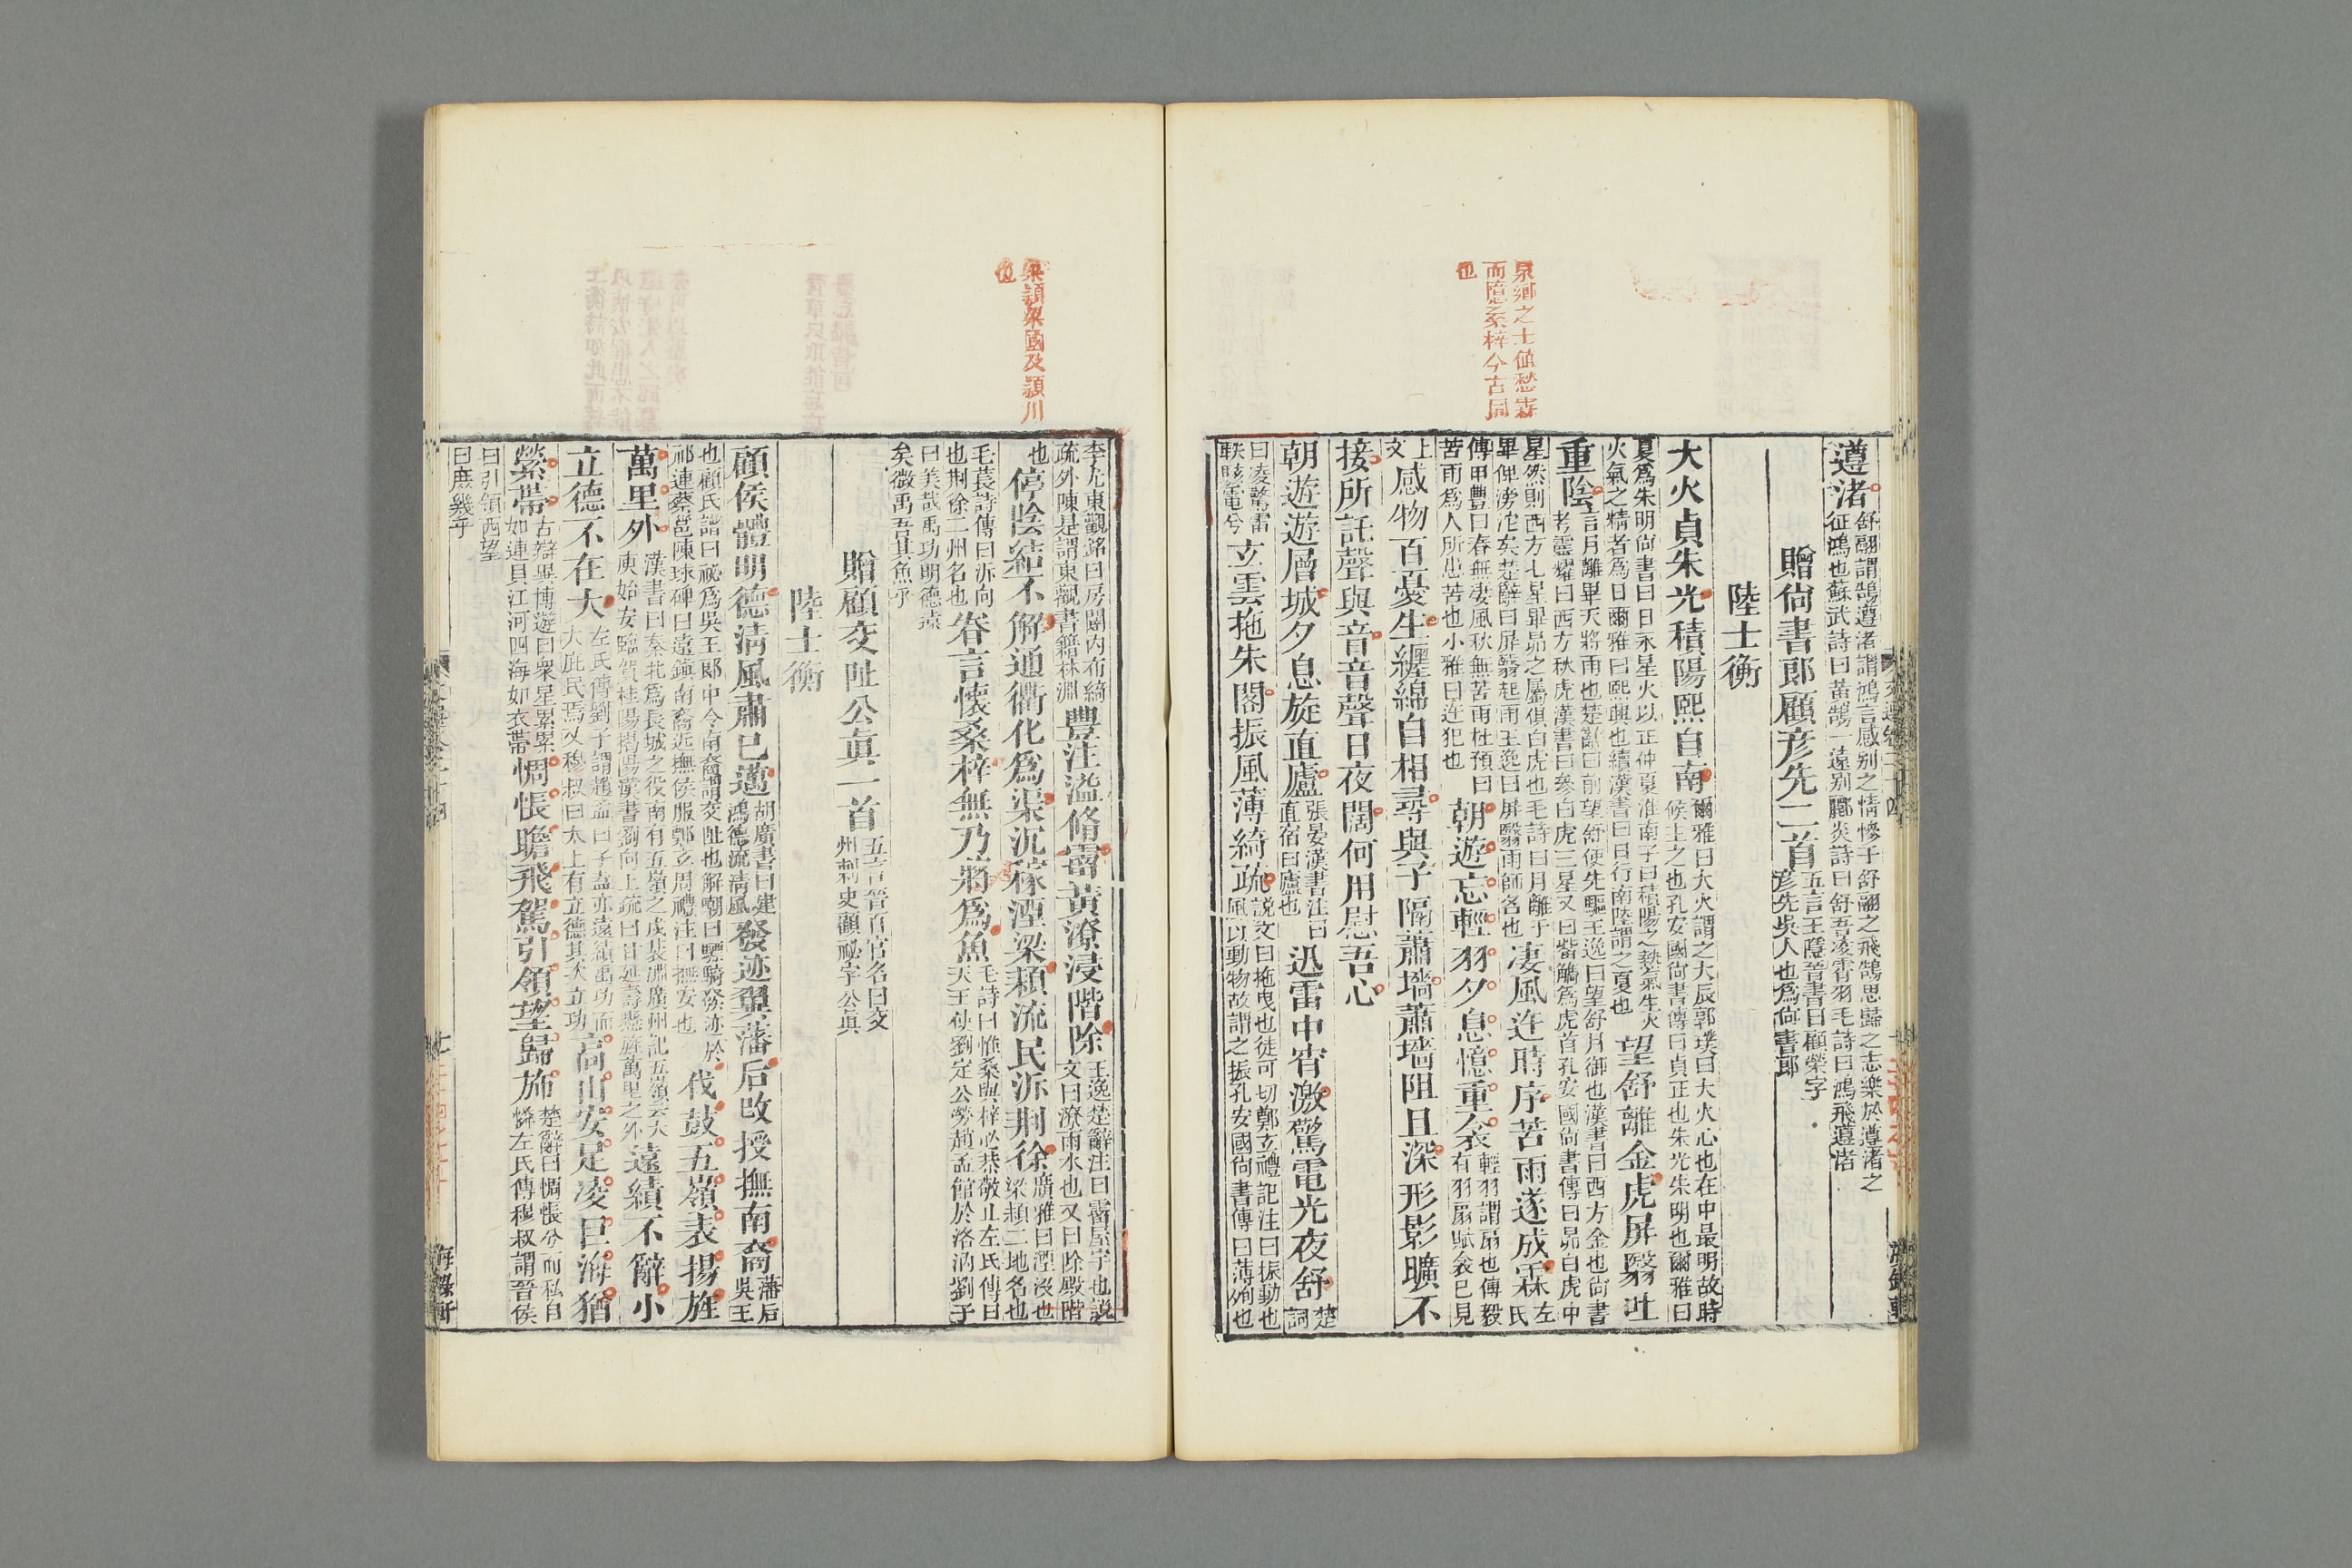 泉鄉之士值愁霖
而憶桑梓今古同
也
遵渚舒翮謂鵠遵渚謂鴻言感别之情慘于舒翮之飛鵠思歸之志樂於遵渚之征鴻也蘇武詩曰黃鵠一遠别酈炎詩曰舒吾凌霄羽毛詩曰鴻飛遵渚
贈尙書郎顧彦先二首五言王隱晉書曰顧榮字彦先吳人也爲尙書郎
陸士衡
大火貞朱光積陽熙自南爾雅曰大火謂之大辰郭璞曰大火心也在中最明故時候主之也孔安國尙書傳曰貞正也朱光朱明也爾雅曰
夏爲朱明尙書曰日永星火以正仲夏淮南子曰積陽之熱氣生火火氣之精者爲日爾雅曰熙興也續漢書曰日行南陸謂之夏也望舒離金虎屏翳吐
重陰言月離畢天將雨也楚辭曰前望舒使先驅王逸曰望舒月御也漢書曰西方金也尙書考靈耀曰西方秋虎漢書曰參白虎三星又曰觜觿爲虎首孔安國尙書傳曰昴白虎中
星然則西方七星畢昴之屬俱白虎也毛詩曰月離于畢俾滂沱矣楚辭曰屏翳起雨王逸曰屏翳雨師名也凄風迕時序苦雨遂成霖左氏
傳申豐曰春無凄風秋無苦雨杜預曰苦雨爲人所患苦也小雅曰迕犯也朝遊忘輕羽夕息憶重衾輕羽謂扇也傅毅有羽扇賦衾已見
上文感物百憂生纏綿自相尋與子隔蕭墻蕭墻阻且深形影曠不
接所託聲與音音聲日夜闊何用慰吾心
朝遊遊層城夕息旋直廬張晏漢書注曰直宿曰廬也迅雷中宵激驚電光夜舒楚詞
曰凌驚雷軼駭電兮玄雲拖朱閣振風薄綺疏說文曰拖曳也徒可切鄭玄禮記注曰振動也風以動物故謂之振孔安國尙書傳曰薄迫也
梁潁梁國及潁川
也
李尤東觀銘曰房闥内布綺疏外陳是謂東觀書籍林淵豐注溢脩霤黃潦浸階除王逸楚辭注曰霤屋宇也說文曰潦雨水也又曰除殿階
也停陰結不解通衢化爲渠沉稼湮梁潁流民泝荆徐廣雅曰湮沒也梁潁二地名也
毛萇詩傳曰泝向也荆徐二州名也眷言懷桑梓無乃將爲魚毛詩曰惟桑與梓必恭敬止左氏傳曰天王使劉定公勞趙孟館於洛汭劉子
曰美哉禹功明德遠矣微禹吾其魚乎
贈顧交阯公眞一首五言晉百官名曰交州刺史顧祕字公眞
陸士衡
顧侯體明德淸風肅已邁胡廣書曰建鴻德流淸風發迹翼藩后改授撫南裔藩后吳王
也顧氏譜曰祕爲吳王郎中令南裔謂交阯也解嘲曰驃騎發迹於祁連蔡邕陳球碑曰遠鎭南裔近撫侯服鄭玄周禮注曰撫安也伐鼓五嶺表揚旌
萬里外漢書曰秦北爲長城之役南有五嶺之戍裴淵廣州記五嶺云大庾始安臨賀桂陽揭陽漢書劉向上疏曰甘延壽懸旌萬里之外遠績不辭小
立德不在大左氏傳劉子謂趙孟曰子盍亦遠績禹功而大庇民焉又穆叔曰太上有立德其次立功高山安足凌巨海猶
縈帶古辯異博遊曰衆星累累如連貝江河四海如衣帶惆悵瞻飛駕引領望歸斾楚辭曰惆悵兮而私自憐左氏傳穆叔謂晉侯
曰引領西望曰庶幾乎
七
海錄軒